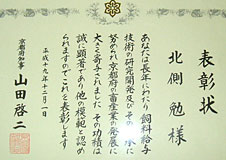 表彰状
北側 勉 様
あなたは長年にわたり 飼料給与
技術の研究開発及びその 承に
努められ京都府の畜産業の発展に
大きく寄与されました その功績は
誠に顕著であり他の模範と認め
られますのでこれを表彰します
平成十九年十二月一日
京都府知事
山田啓二